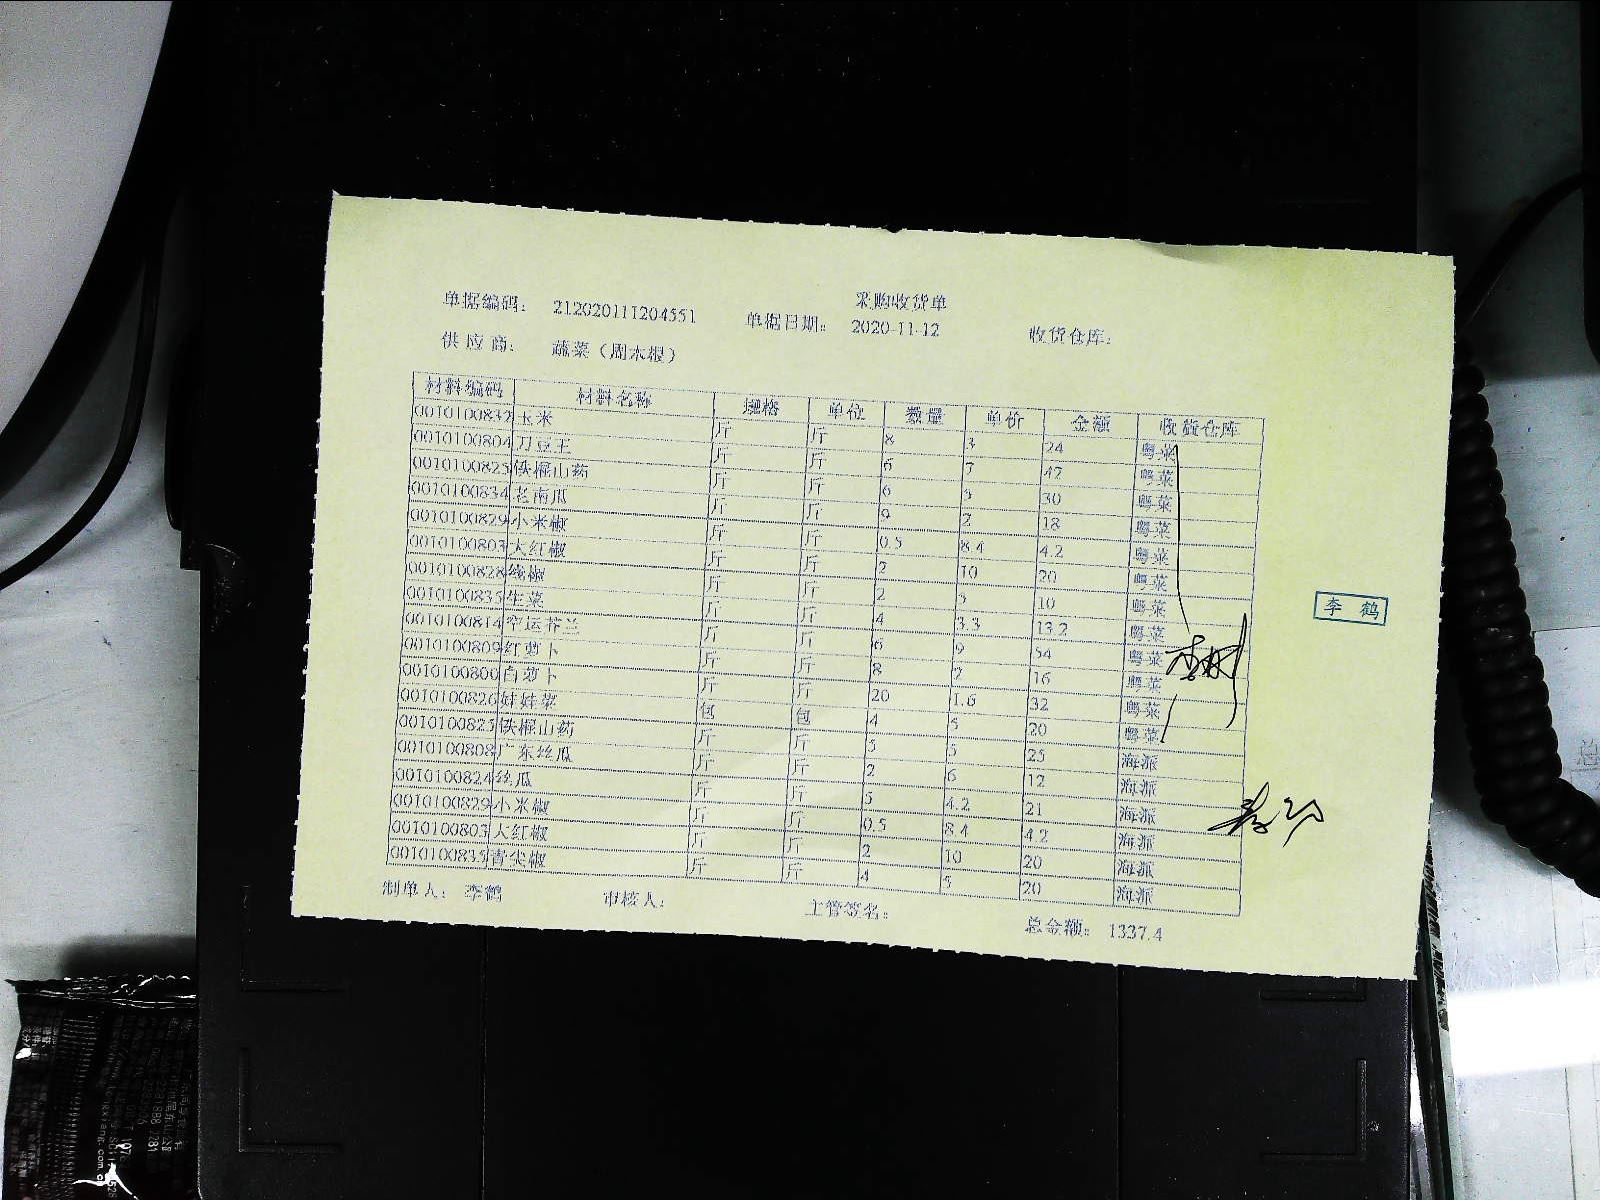 采购收货单
单据编码： 212020111204551 单据日期： 2020-11-12 收货仓库：
供 应 商： 蔬菜（周木根）
材料编码 材料名称 规格 单位 数量 单价 金额 收货仓库
0010100832 玉米 斤 斤 8 3 24 粤菜
0010100804 刀豆王 斤 斤 6 7 42 粤菜
0010100825 铁棍山药 斤 斤 6 5 30 粤菜
0010100834 老南瓜 斤 斤 9 2 18 粤菜
0010100829 小米椒 斤 斤 0.5 8.4 4.2 粤菜
0010100803 大红椒 斤 斤 2 10 20 粤菜
0010100828 线椒 斤 斤 2 5 10 粤菜
0010100835 生菜 斤 斤 4 3.3 13.2 粤菜
0010100814 空运芥兰 斤 斤 6 9 54 粤菜
0010100809 红萝卜 斤 斤 8 2 16 粤菜
0010100800 白萝卜 斤 斤 20 1.6 32 粤菜
0010100826 娃娃菜 包 包 4 5 20 粤菜
0010100825 铁棍山药 斤 斤 5 5 25 海派
0010100808 广东丝瓜 斤 斤 2 6 12 海派
0010100824 丝瓜 斤 斤 5 4.2 21 海派
0010100829 小米椒 斤 斤 0.5 8.4 4.2 海派
0010100803 大红椒 斤 斤 2 10 20 海派
0010100835 青尖椒 斤 斤 4 5 20 海派
制单人： 李鹤 审核人： 主管签名： 总金额： 1337.4
李 鹤